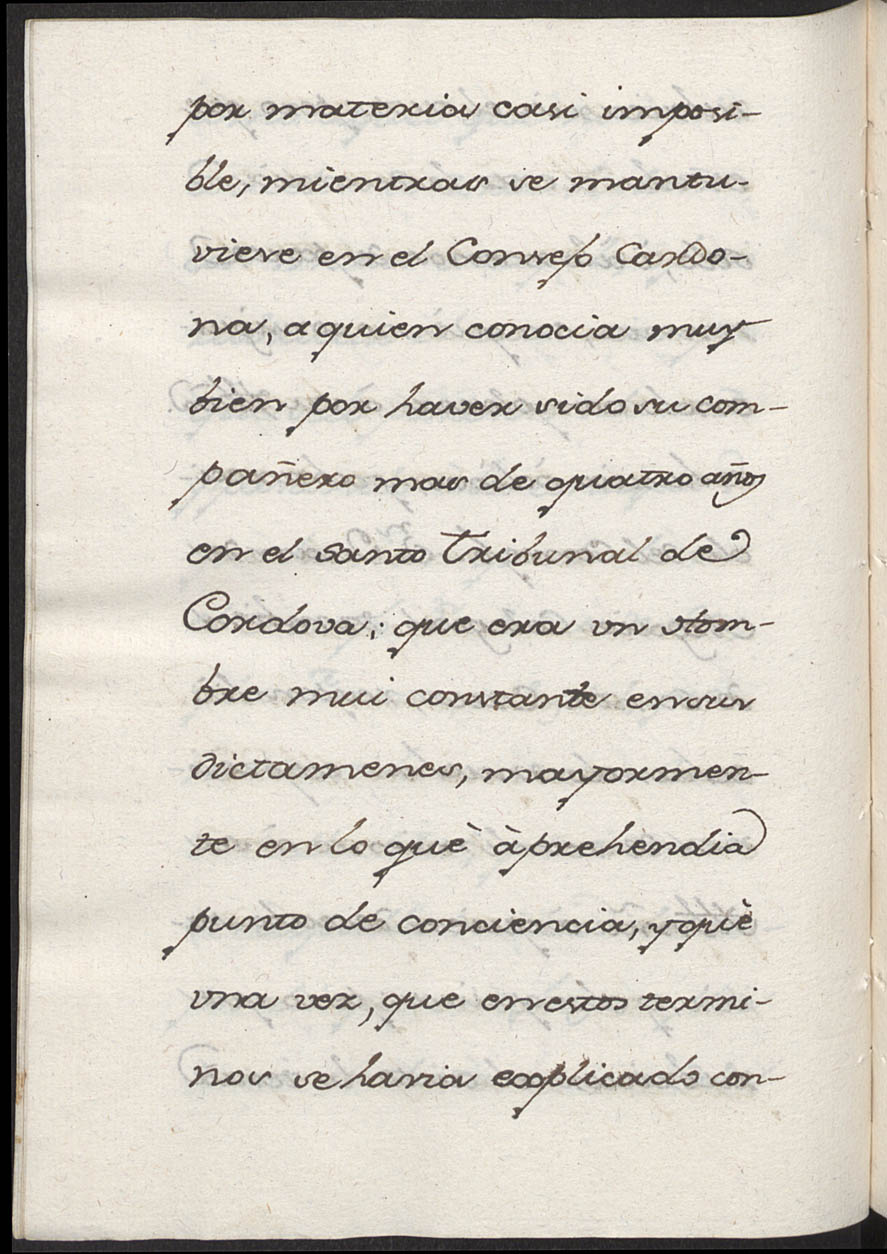 por materia casi imposi-
ble, mientras se mantu-
viese en el Consejo Cardo-
na, a quien conocia muy
bien por haver sido su com-
pañero mas de quatro años
en el santo Tribunal de
Cordova; que era un Hom-
bre mui constante en sus
dictamenes, mayormen-
te en lo què àprehendia
punto de conciencia, y què
vna vez, que en estos termi-
nos se havia explicado con-